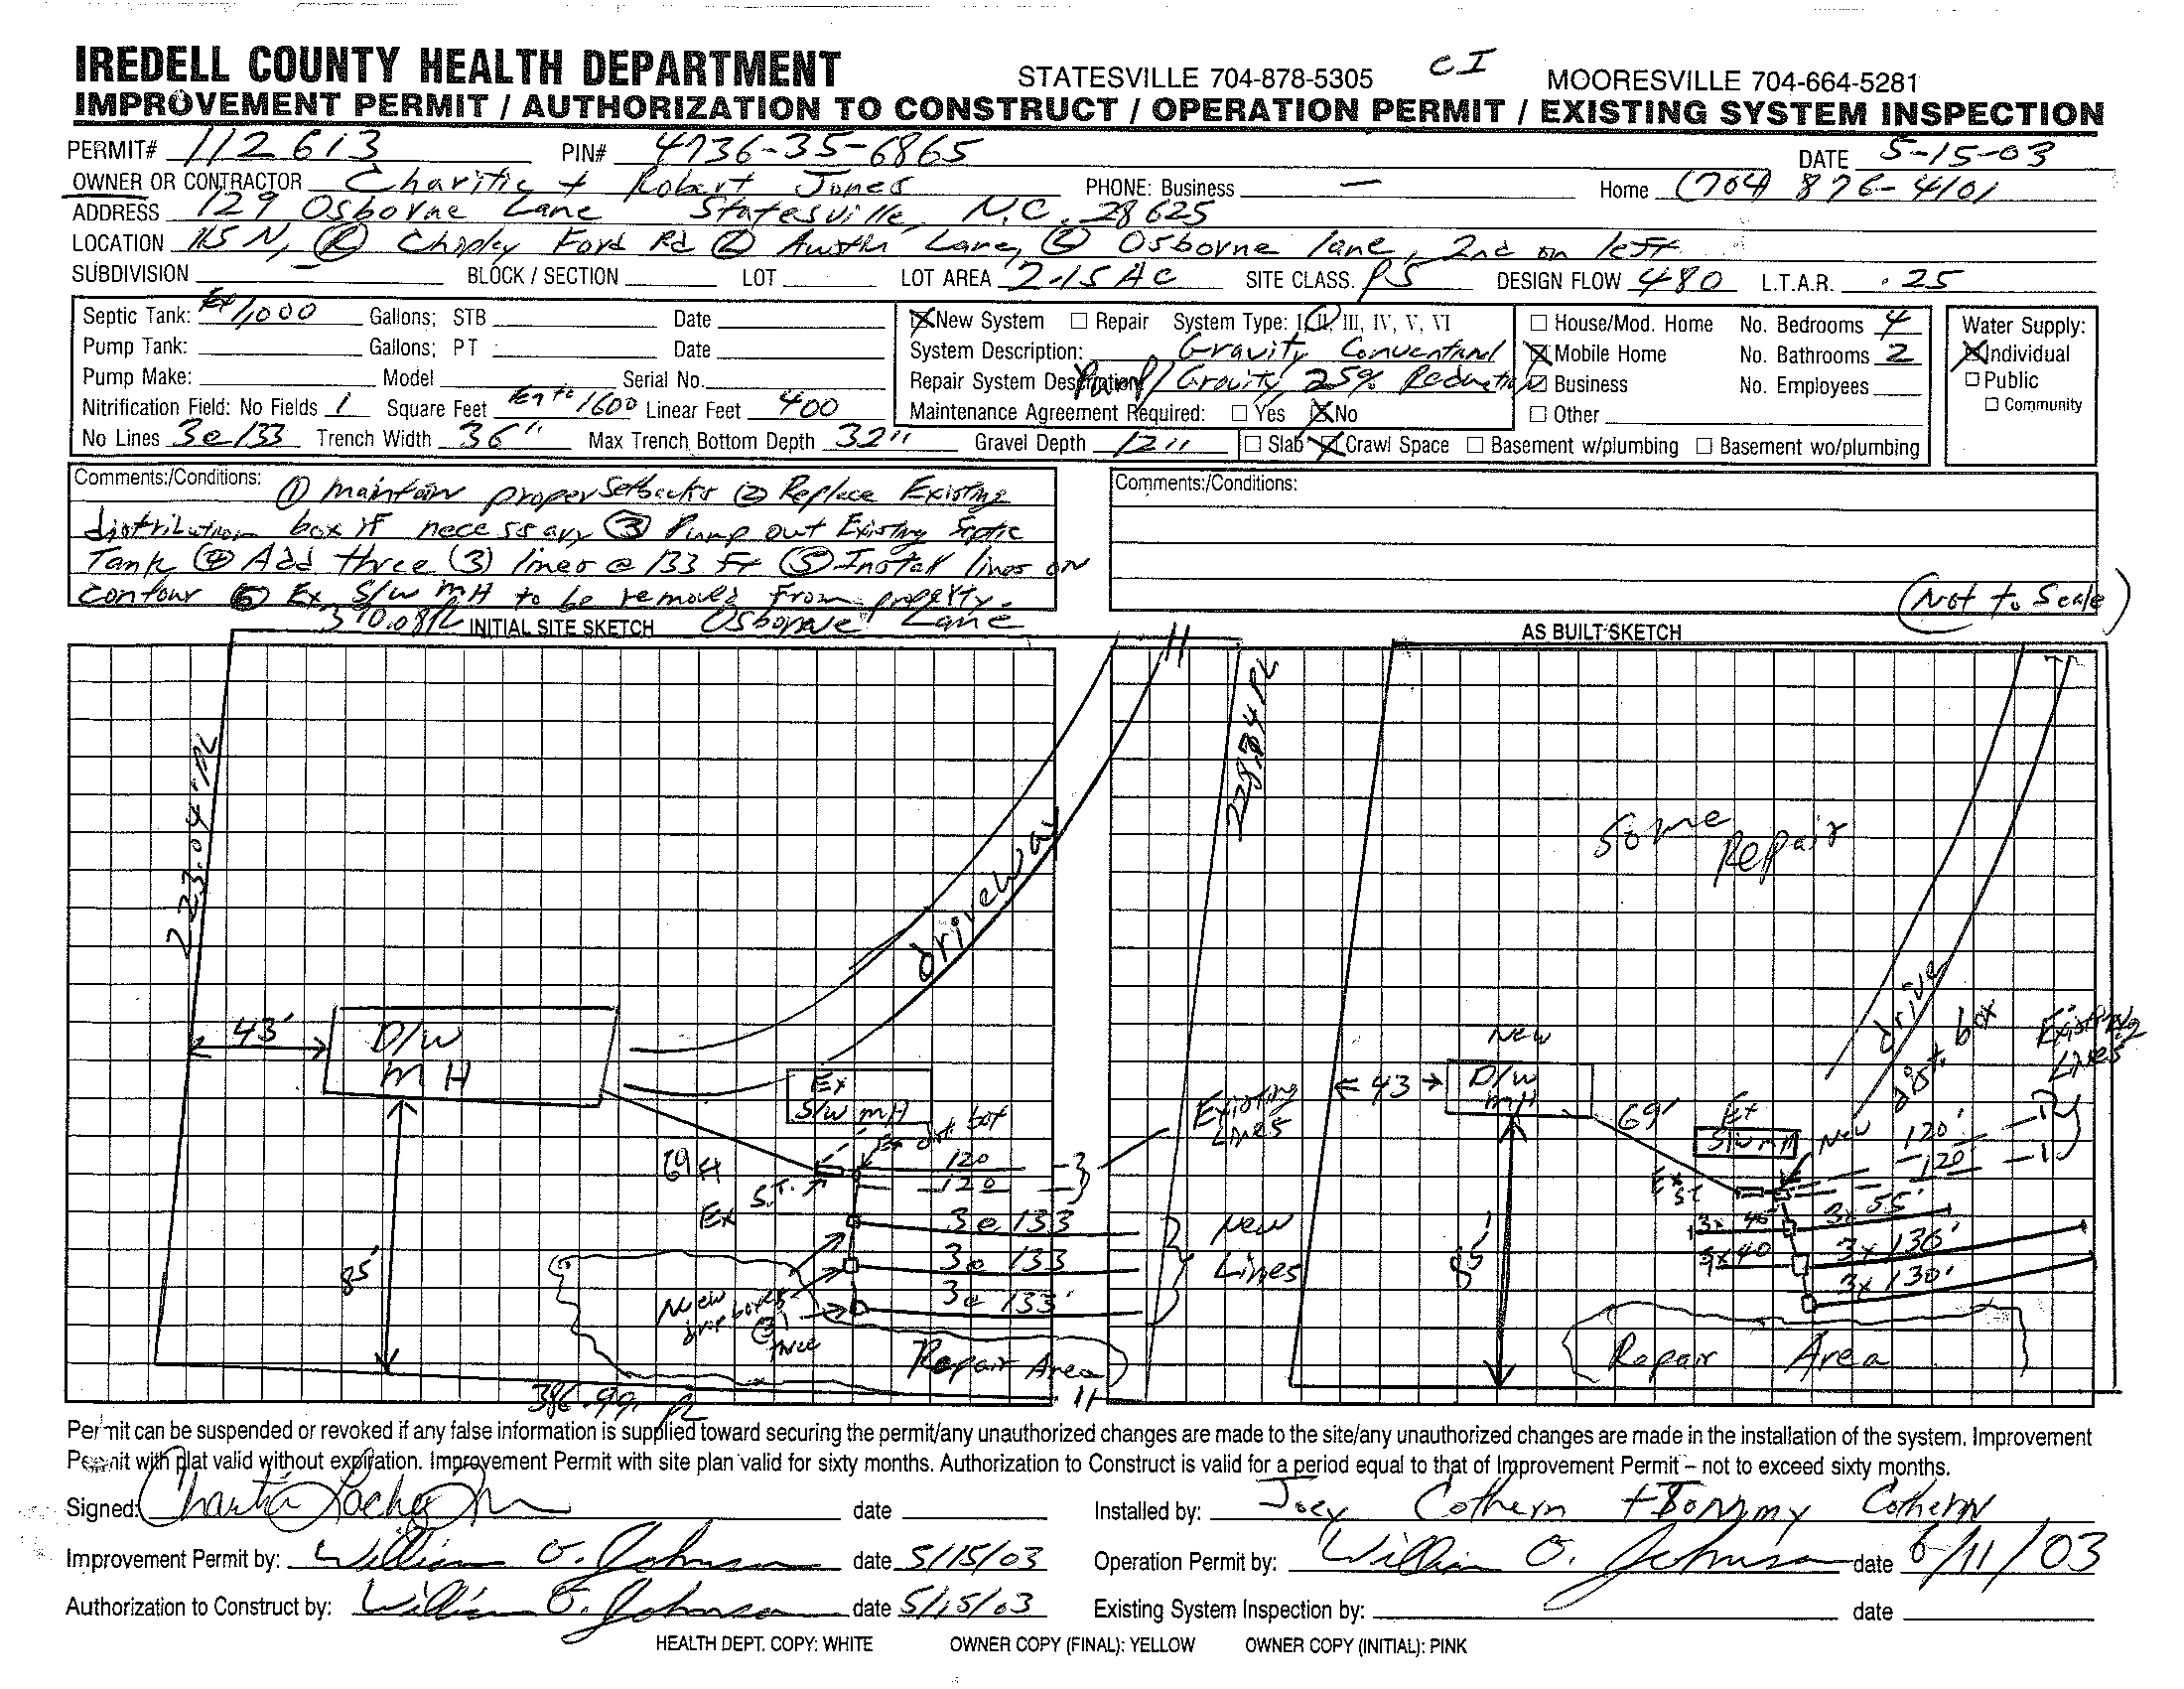 IREDELL COUNTY HEALTH DEPARTMENT STATESVILLE 704-878-5305 CI MOORESVILLE 704-664-5281
IMPROVEMENT PERMIT / AUTHORIZATION TO CONSTRUCT / OPERATION PERMIT / EXISTING SYSTEM INSPECTION
PERMIT# 112613 PIN# 4736-35-6865 DATE 5-15-03
OWNER OR CONTRACTOR Charitie + Robert Jones PHONE: Business — Home (704) 876-4101
ADDRESS 129 Osborne Lane Statesville, N.C. 28625
LOCATION 115 N, Ⓡ Chipley Ford Rd Ⓛ Austin Lane, Ⓛ Osborne lane, 2nd on left
SUBDIVISION — BLOCK / SECTION LOT LOT AREA 2.15 AC SITE CLASS. PS DESIGN FLOW 480 L.T.A.R. .25
Septic Tank: Ex 1,000 Gallons; STB Date
Pump Tank: Gallons; PT Date
Pump Make: Model Serial No.
Nitrification Field: No Fields 1 Square Feet 1600 Linear Feet 400
No Lines 3@133 Trench Width 36" Max Trench Bottom Depth 32" Gravel Depth 12"
☒ New System ☐ Repair System Type: I, II, III, IV, V, VI
System Description: Gravity Conventional
Repair System Description: Pump/Gravity 25% Reduction
Maintenance Agreement Required: ☐ Yes ☒ No
☐ Slab ☒ Crawl Space ☐ Basement w/plumbing ☐ Basement wo/plumbing
☐ House/Mod. Home No. Bedrooms 4
☒ Mobile Home No. Bathrooms 2
☐ Business No. Employees
☐ Other
Water Supply:
☒ Individual
☐ Public
☐ Community
Comments:/Conditions: ① maintain proper Setbacks ② Replace Existing
distribution box if necessary ③ Pump out Existing Septic
Tank ④ Add three (3) lines @ 133 Ft ⑤ Install lines on
contour ⑥ Ex S/W MH to be removed from property.
Comments:/Conditions:
(Not to Scale)
390.08 PL INITIAL SITE SKETCH Osborne Lane
223.04 PL
228.84 PL
driveway
43'
D/W
MH
Ex
S/W MH
Ex dist box
69 ft
Ex S.T.
120
120
Existing
Lines
3@133
3@133
3@133'
New
Lines
85'
New
drop boxes
@
three
Repair Area
386.99 PL
AS BUILT SKETCH
Some
Repair
drive
New
43
D/W
MH
69'
Ex
S/W MH
New dist. box
Existing
Lines
120'
120'
Ex
ST
3x 40'
3x 55'
3x40
3x 136'
3x 130'
85'
Repair Area
Permit can be suspended or revoked if any false information is supplied toward securing the permit/any unauthorized changes are made to the site/any unauthorized changes are made in the installation of the system. Improvement
Permit with plat valid without expiration. Improvement Permit with site plan valid for sixty months. Authorization to Construct is valid for a period equal to that of Improvement Permit – not to exceed sixty months.
Signed: date Installed by: Joey Cothern + Tommy Cothern
Improvement Permit by: William O. Johnson date 5/15/03 Operation Permit by: William O. Johnson date 6/11/03
Authorization to Construct by: William O. Johnson date 5/15/03 Existing System Inspection by: date
HEALTH DEPT. COPY: WHITE OWNER COPY (FINAL): YELLOW OWNER COPY (INITIAL): PINK